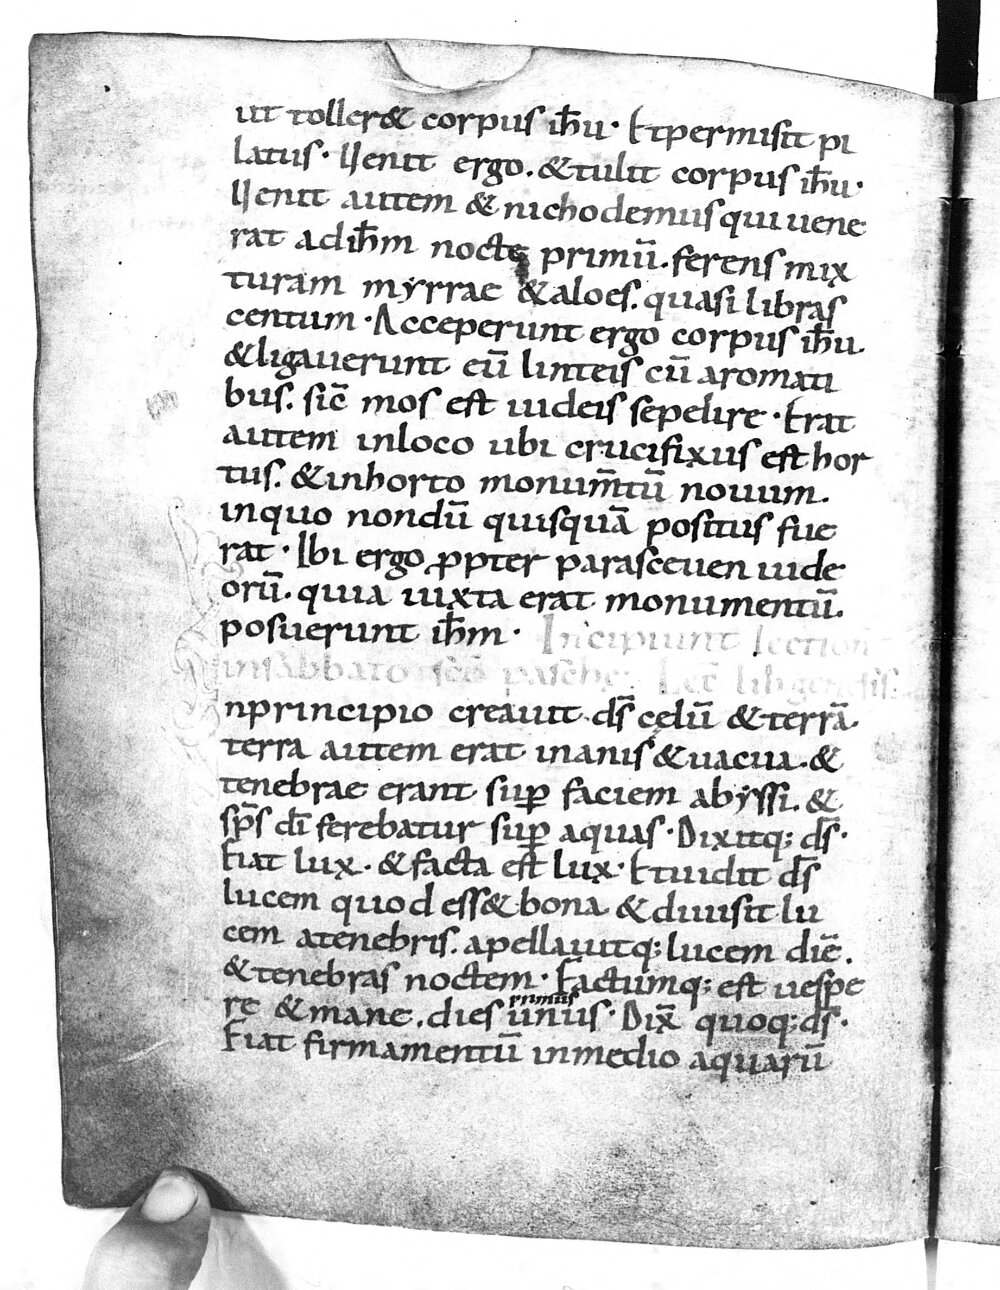 ut toller& corpus ih̅u· Et permisit pi
latus· Uenit ergo. & tulit corpus ih̅u·
Uenit autem & nichodemus qui uene
rat ad ih̅m nocte primu̅. ferens mix
turam myrrae & aloes. quasi libras
centum· Acceperunt ergo corpus ih̅u
& ligauerunt eu̅ linteis cu̅ aromati
bus. sic̅ mos est iudeis sepelire· Erat
autem in loco ubi crucifixus est hor
tus. & in horto monum̅tu̅ nouum.
in quo nondu̅ quisqua̅ positus fue
rat· Ibi ergo ꝓpter parasceuen iude
oru̅. quia iuxta erat monumentu̅.
posuerunt ih̅m· Incipiunt lection
in sabbato sc̅o pasche: Lec̅ lib genesis.
nprincipio creauit ds̅ cęlu̅ & terra̅.
terra autem erat inanis & uacua. &
tenebrae erant sup̲ faciem abyssi. &
sp̅s di̅ ferebatur sup̲ aquas· Dixitq; ds̅·
Fiat lux. & facta est lux· Et uidit ds̅
lucem quod ess& bona & diuisit lu
cem a tenebris. apellauitq; lucem die̅.
& tenebras noctem· Factumq; est uespe
re & mane. dies unus primus· Dix̅ quoq; ds̅·
Fiat firmamentu̅ in medio aquaru̅